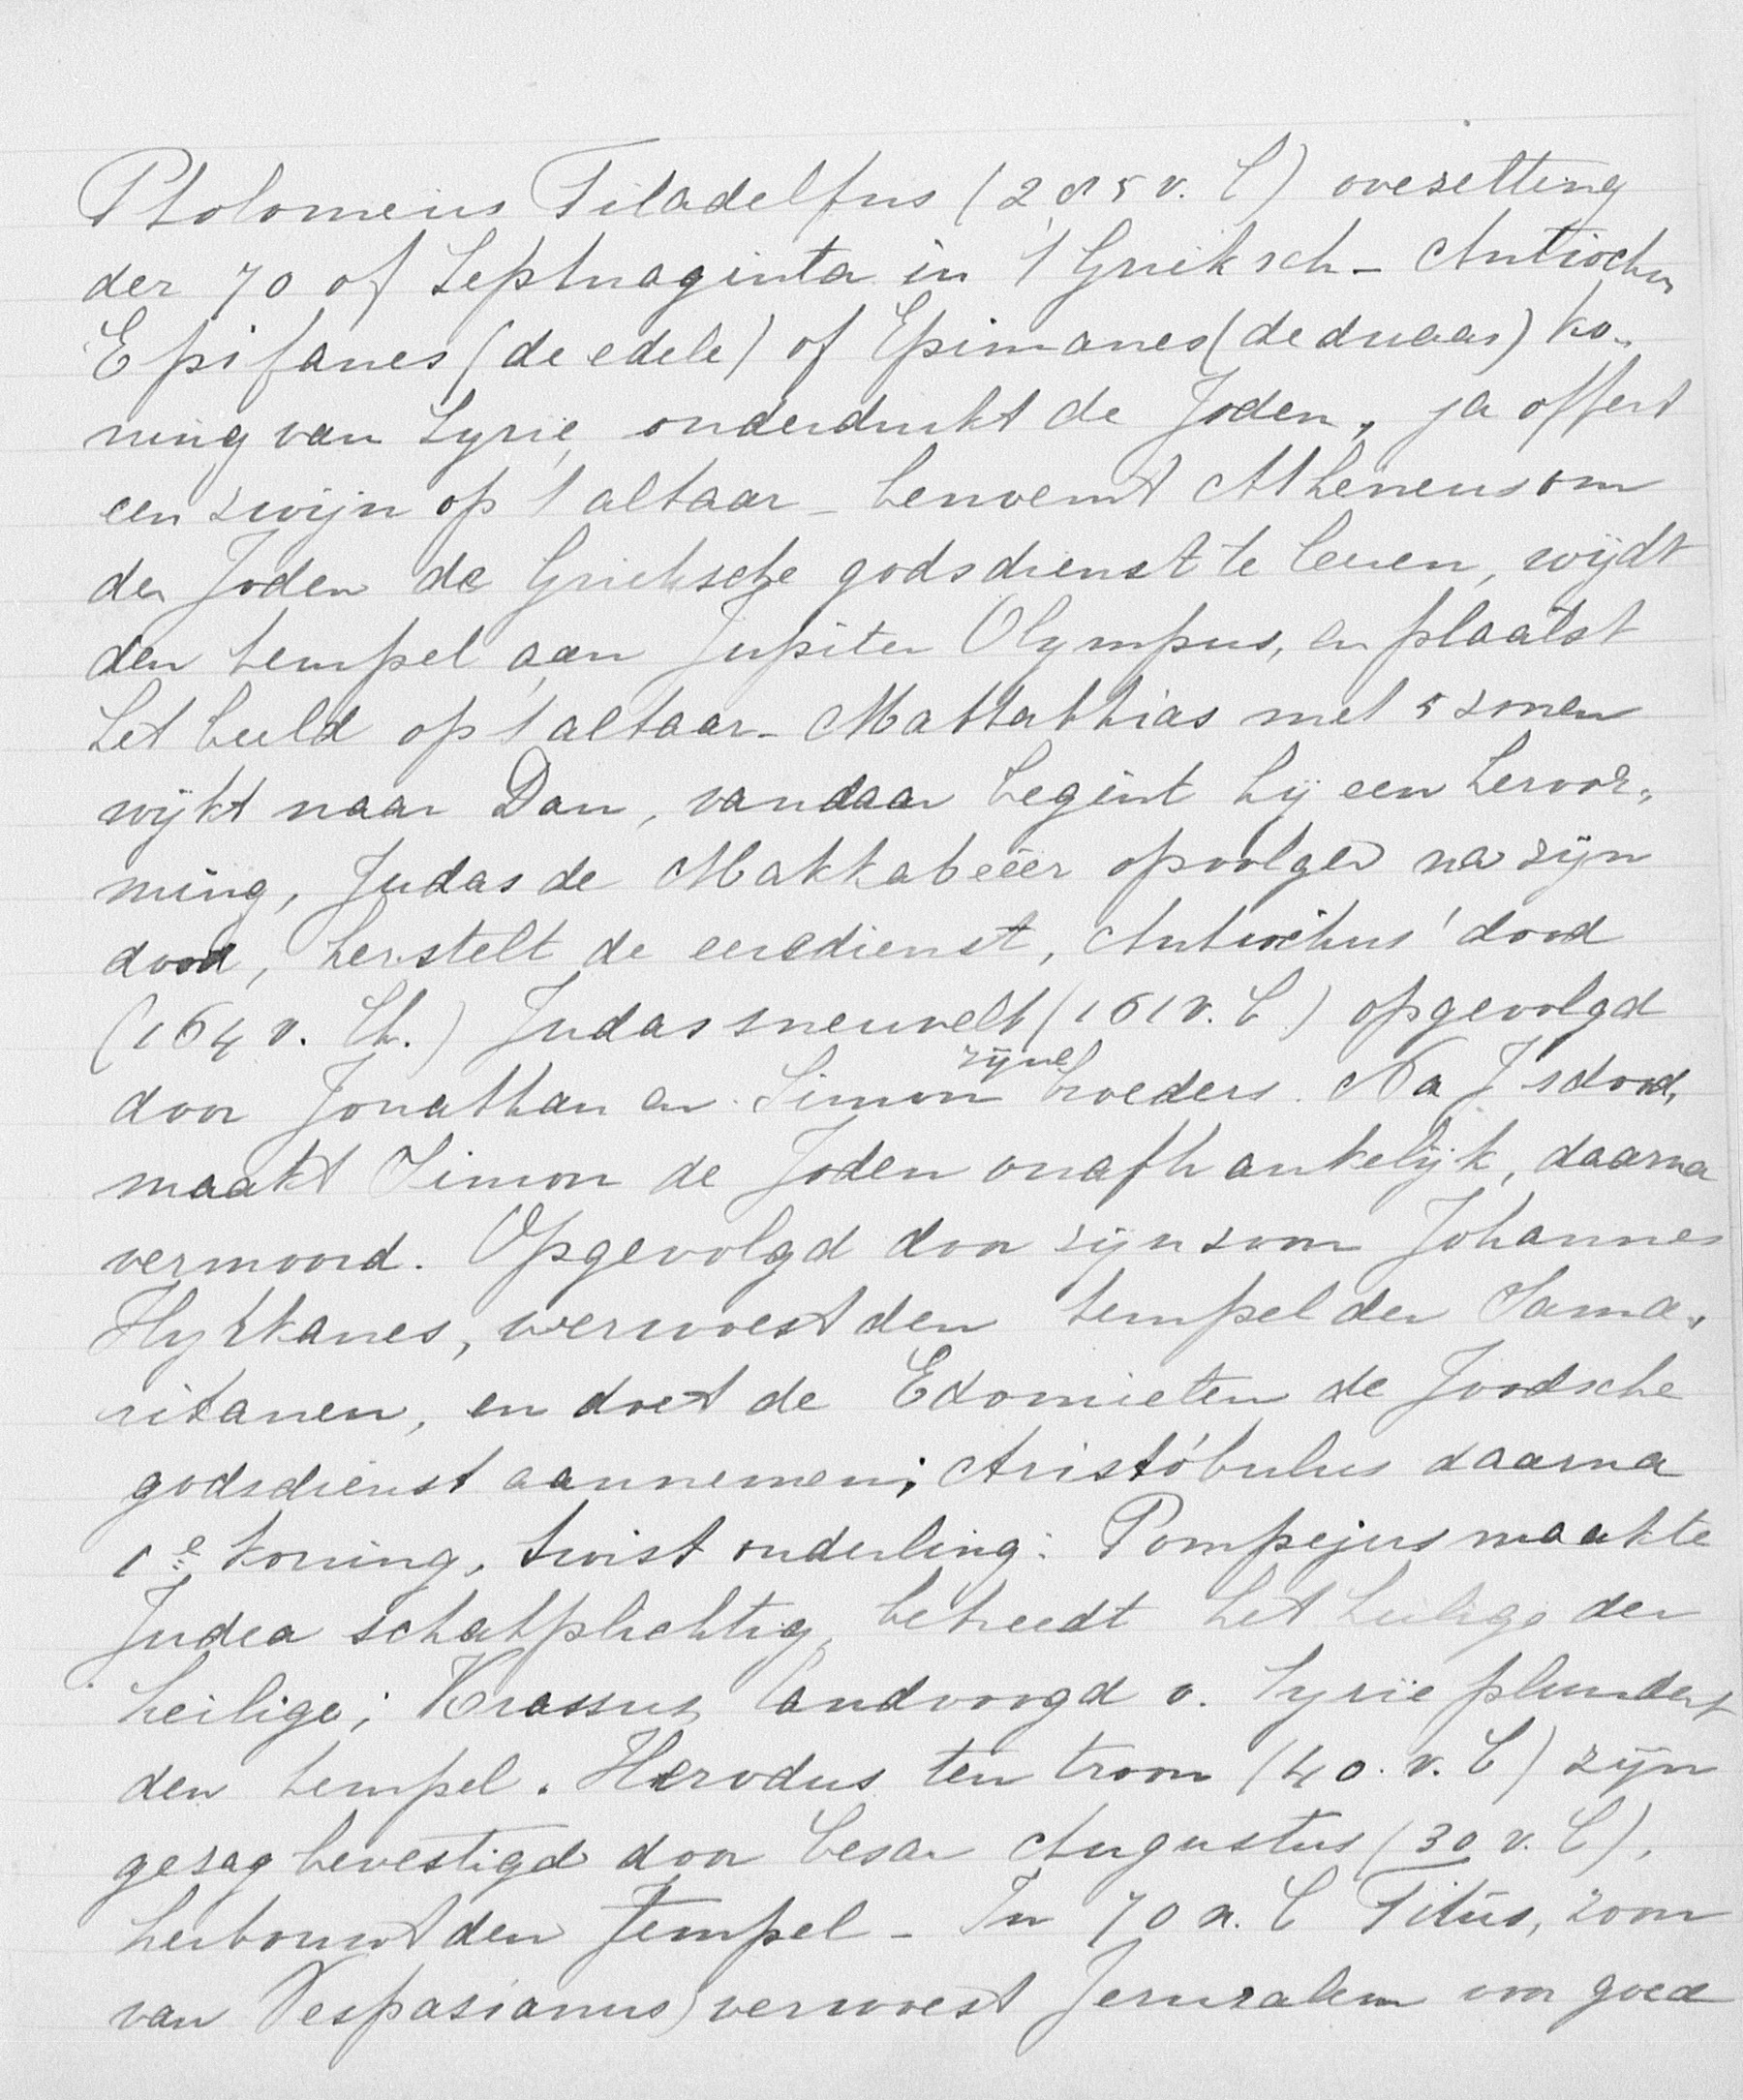 Ptolomeius Filadelfus (285 v. C) overzetting
der 70 of Septuaginta in 't Grieksch - Antiochus
Epifanes (de edele) of Epimanes (de dwaas) ko-
ning van Syrië, onderdrukt de Joden, ja offert
een zwijn op 't altaar - benoemt Atheneus om
de Joden de Grieksche godsdienst te leeren, wijdt
den tempel aan Jupiter Olympus, en plaatst
het beeld op 't altaar - Mattathias met 5 zonen
wijkt naar Dan, vandaar begint hij een hervor-
ming, Judas de Makkabeëer opvolger na zijn
dood, herstelt de eeredienst, Antiochus' dood
(164 v. Ch.) Judas sneuvelt (161 v. C.) opgevolgd
door Jonathan en Simon zijne broeders. Na J's dood,
maakt Simon de Joden onafhankelijk, daarna
vermoord. Opgevolgd door zijn zoon Johannes
Hyrkanes, verwoest den tempel der Sama-
ritanen, en doet de Edomieten de Joodsche
godsdienst aannemen; Aristóbulus daarna
1e koning, twist onderling: Pompejus maakte
Judea schatplichtig, betreedt het heilige der
heilige; Krassus landvoogd v. Syrië plundert
den tempel. Herodus ten troon (40. v. C) zijn
gezag bevestigd door Cesar Augustus (30 v. C),
herbouwt den Tempel - In 70 n. C Titus, zoon
van Vespasianus) verwoest Jeruzalem voor goed